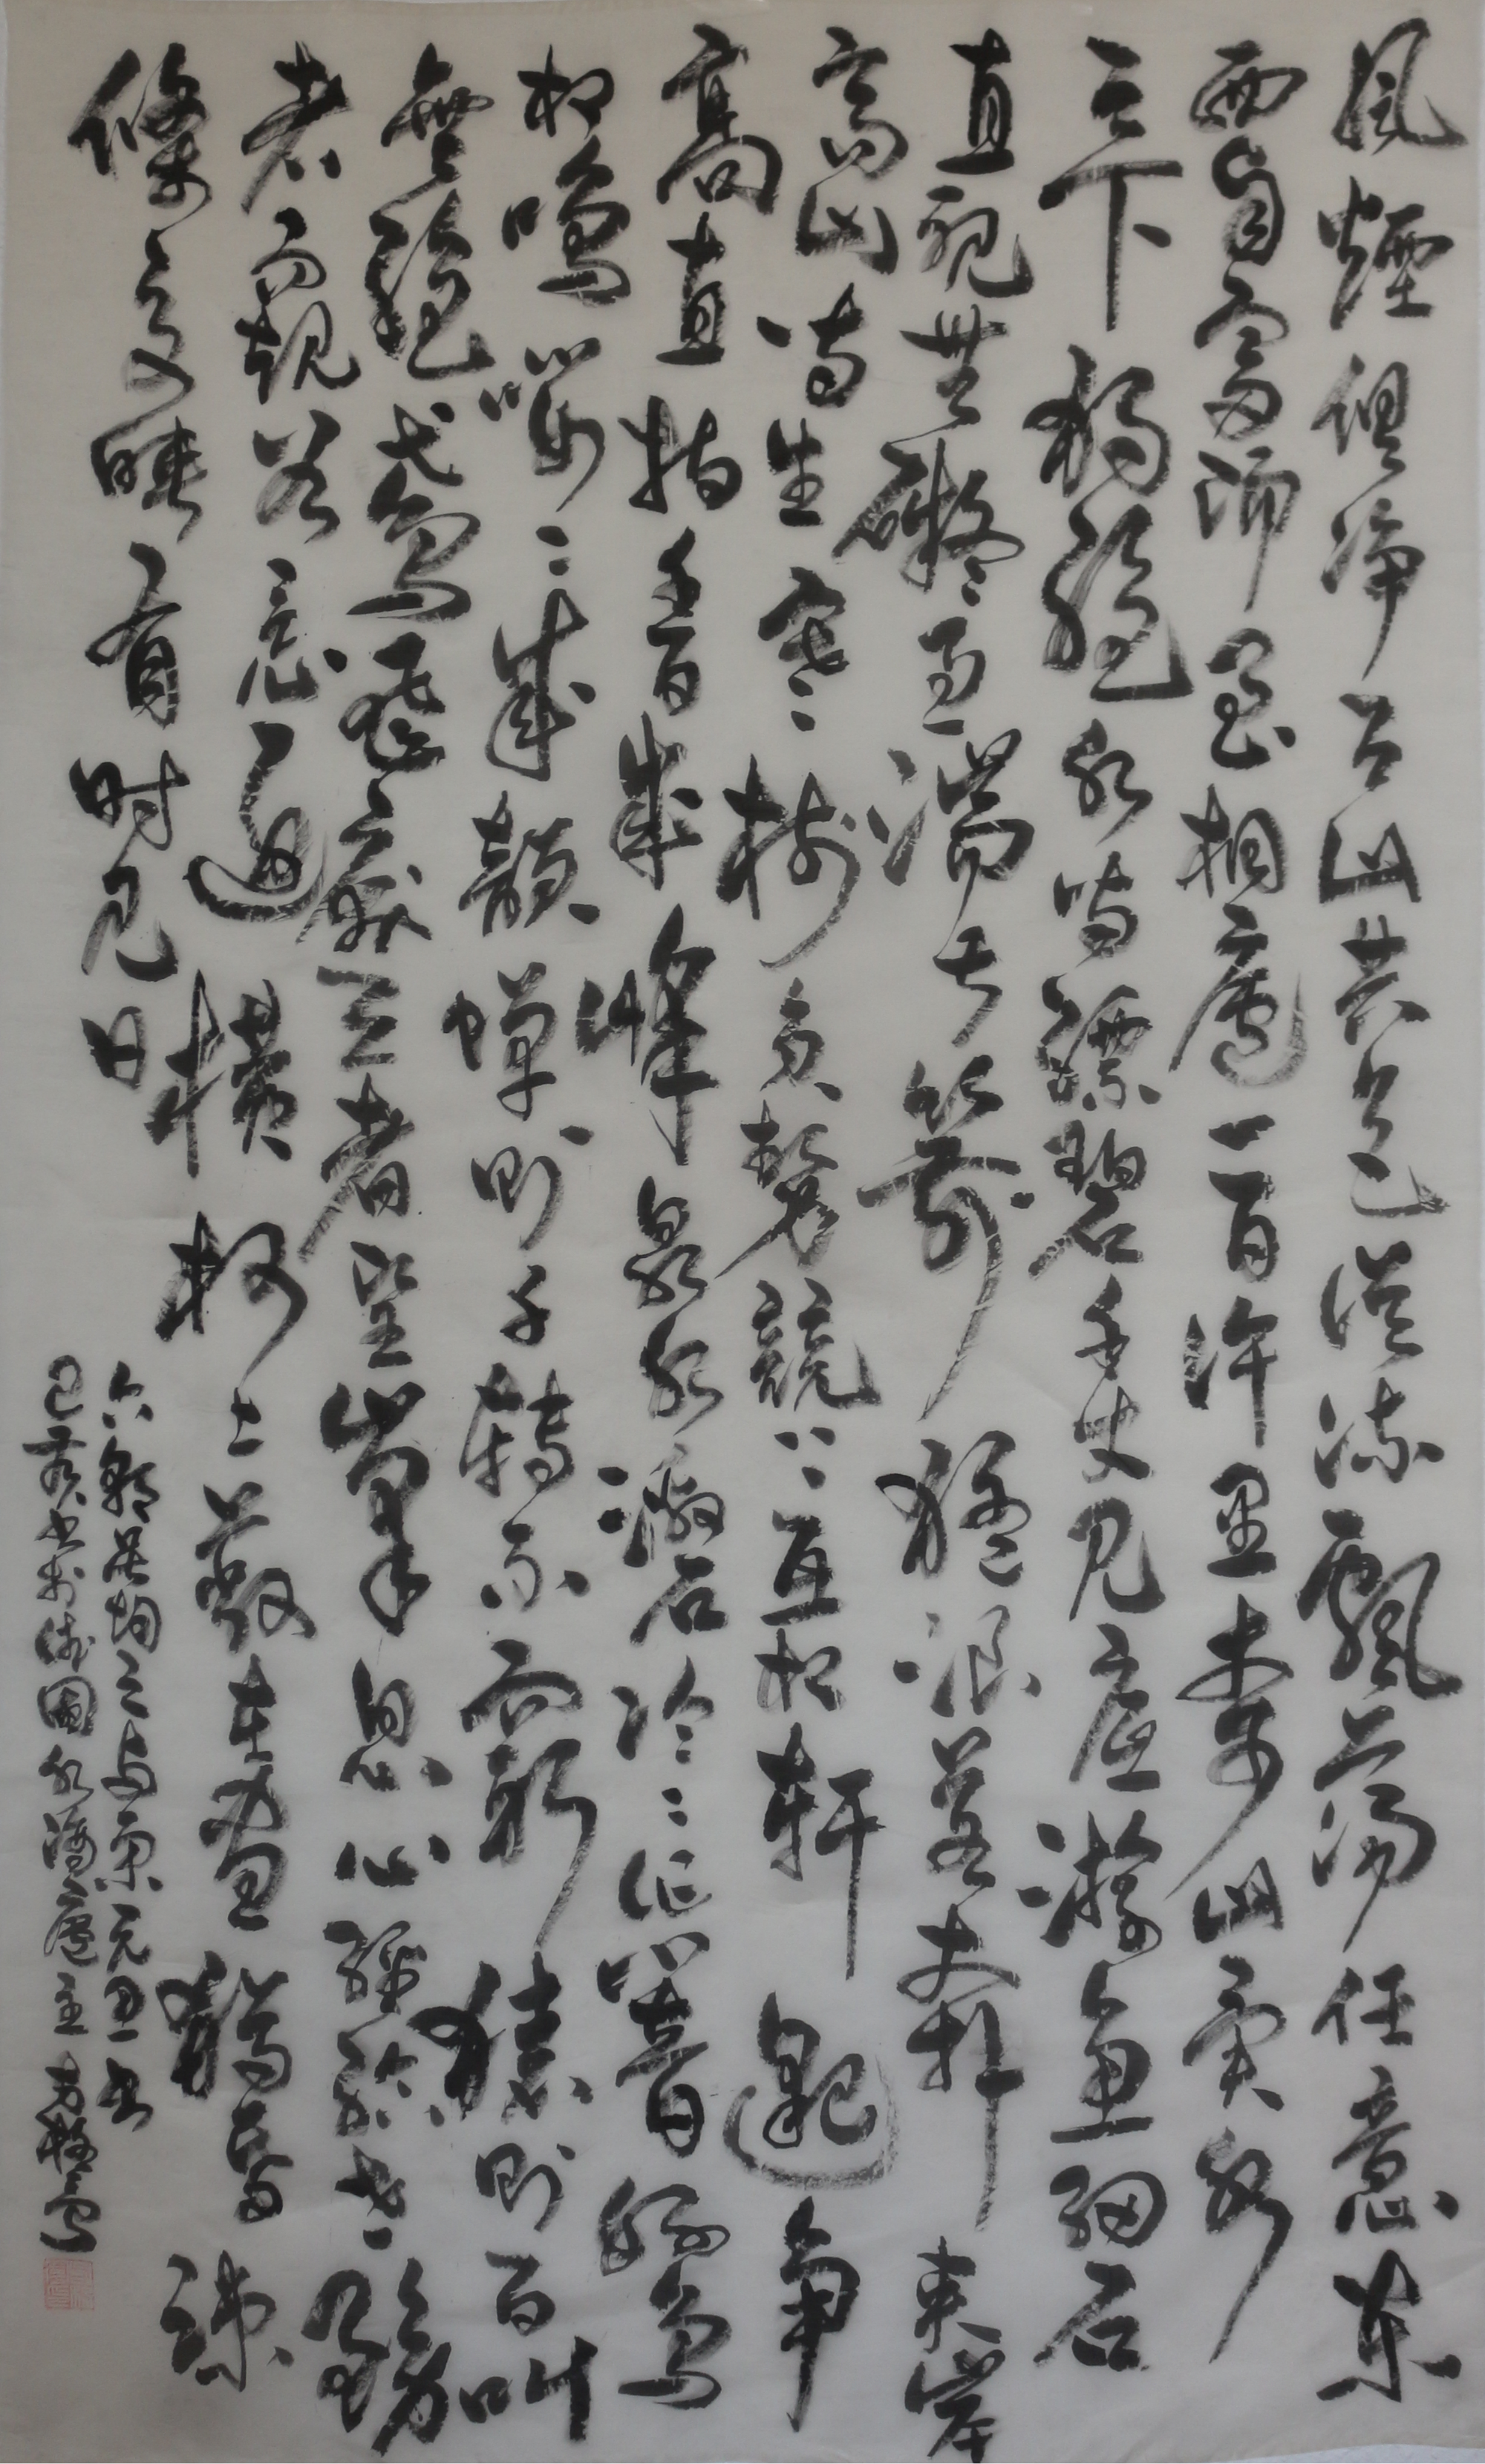 風煙俱淨天山共色從流飄蕩任意東
西自富陽至桐廬一百許里奇山異水
天下獨絕水皆縹碧千丈見底游魚細石
直視無礙急湍甚箭猛浪若奔夾岸
高山皆生寒樹負勢競上互相軒邈爭
高直指千百成峰泉水激石泠泠作響好鳥
相鳴嚶嚶成韻蟬則千轉不窮猿則百叫
無絕鳶飛戾天者望峯息心經綸世務
者窺谷忘返橫柯上蔽在晝猶昏疎
條交映有时見日
六朝吳均之與宋元思書
己亥書於國水廬主